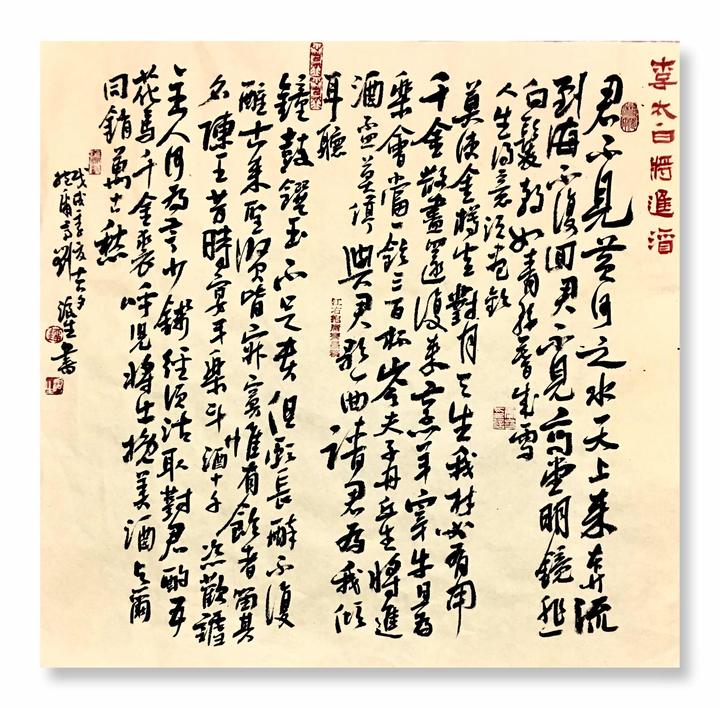 李太白將進酒
君不見黃河之水天上来奔流
到海不復回君不見高堂明鏡悲
白髮朝如青絲暮成雪
人生得意須盡歡
莫使金樽空對月天生我材必有用
千金散盡還復来烹羊宰牛且為
樂會當一飲三百杯岑夫子丹丘生將進
酒盃莫停與君歌一曲請君為我傾
耳聽
鐘鼓饌玉不足貴但願長醉不復
醒古来聖賢皆寂寞惟有飲者留其
名陳王昔時宴平樂斗酒十千恣歡謔
主人何為言少錢徑須沽取對君酌五
花馬千金裘呼兒將出換美酒与爾
同銷萬古愁
戊戌季夏
書